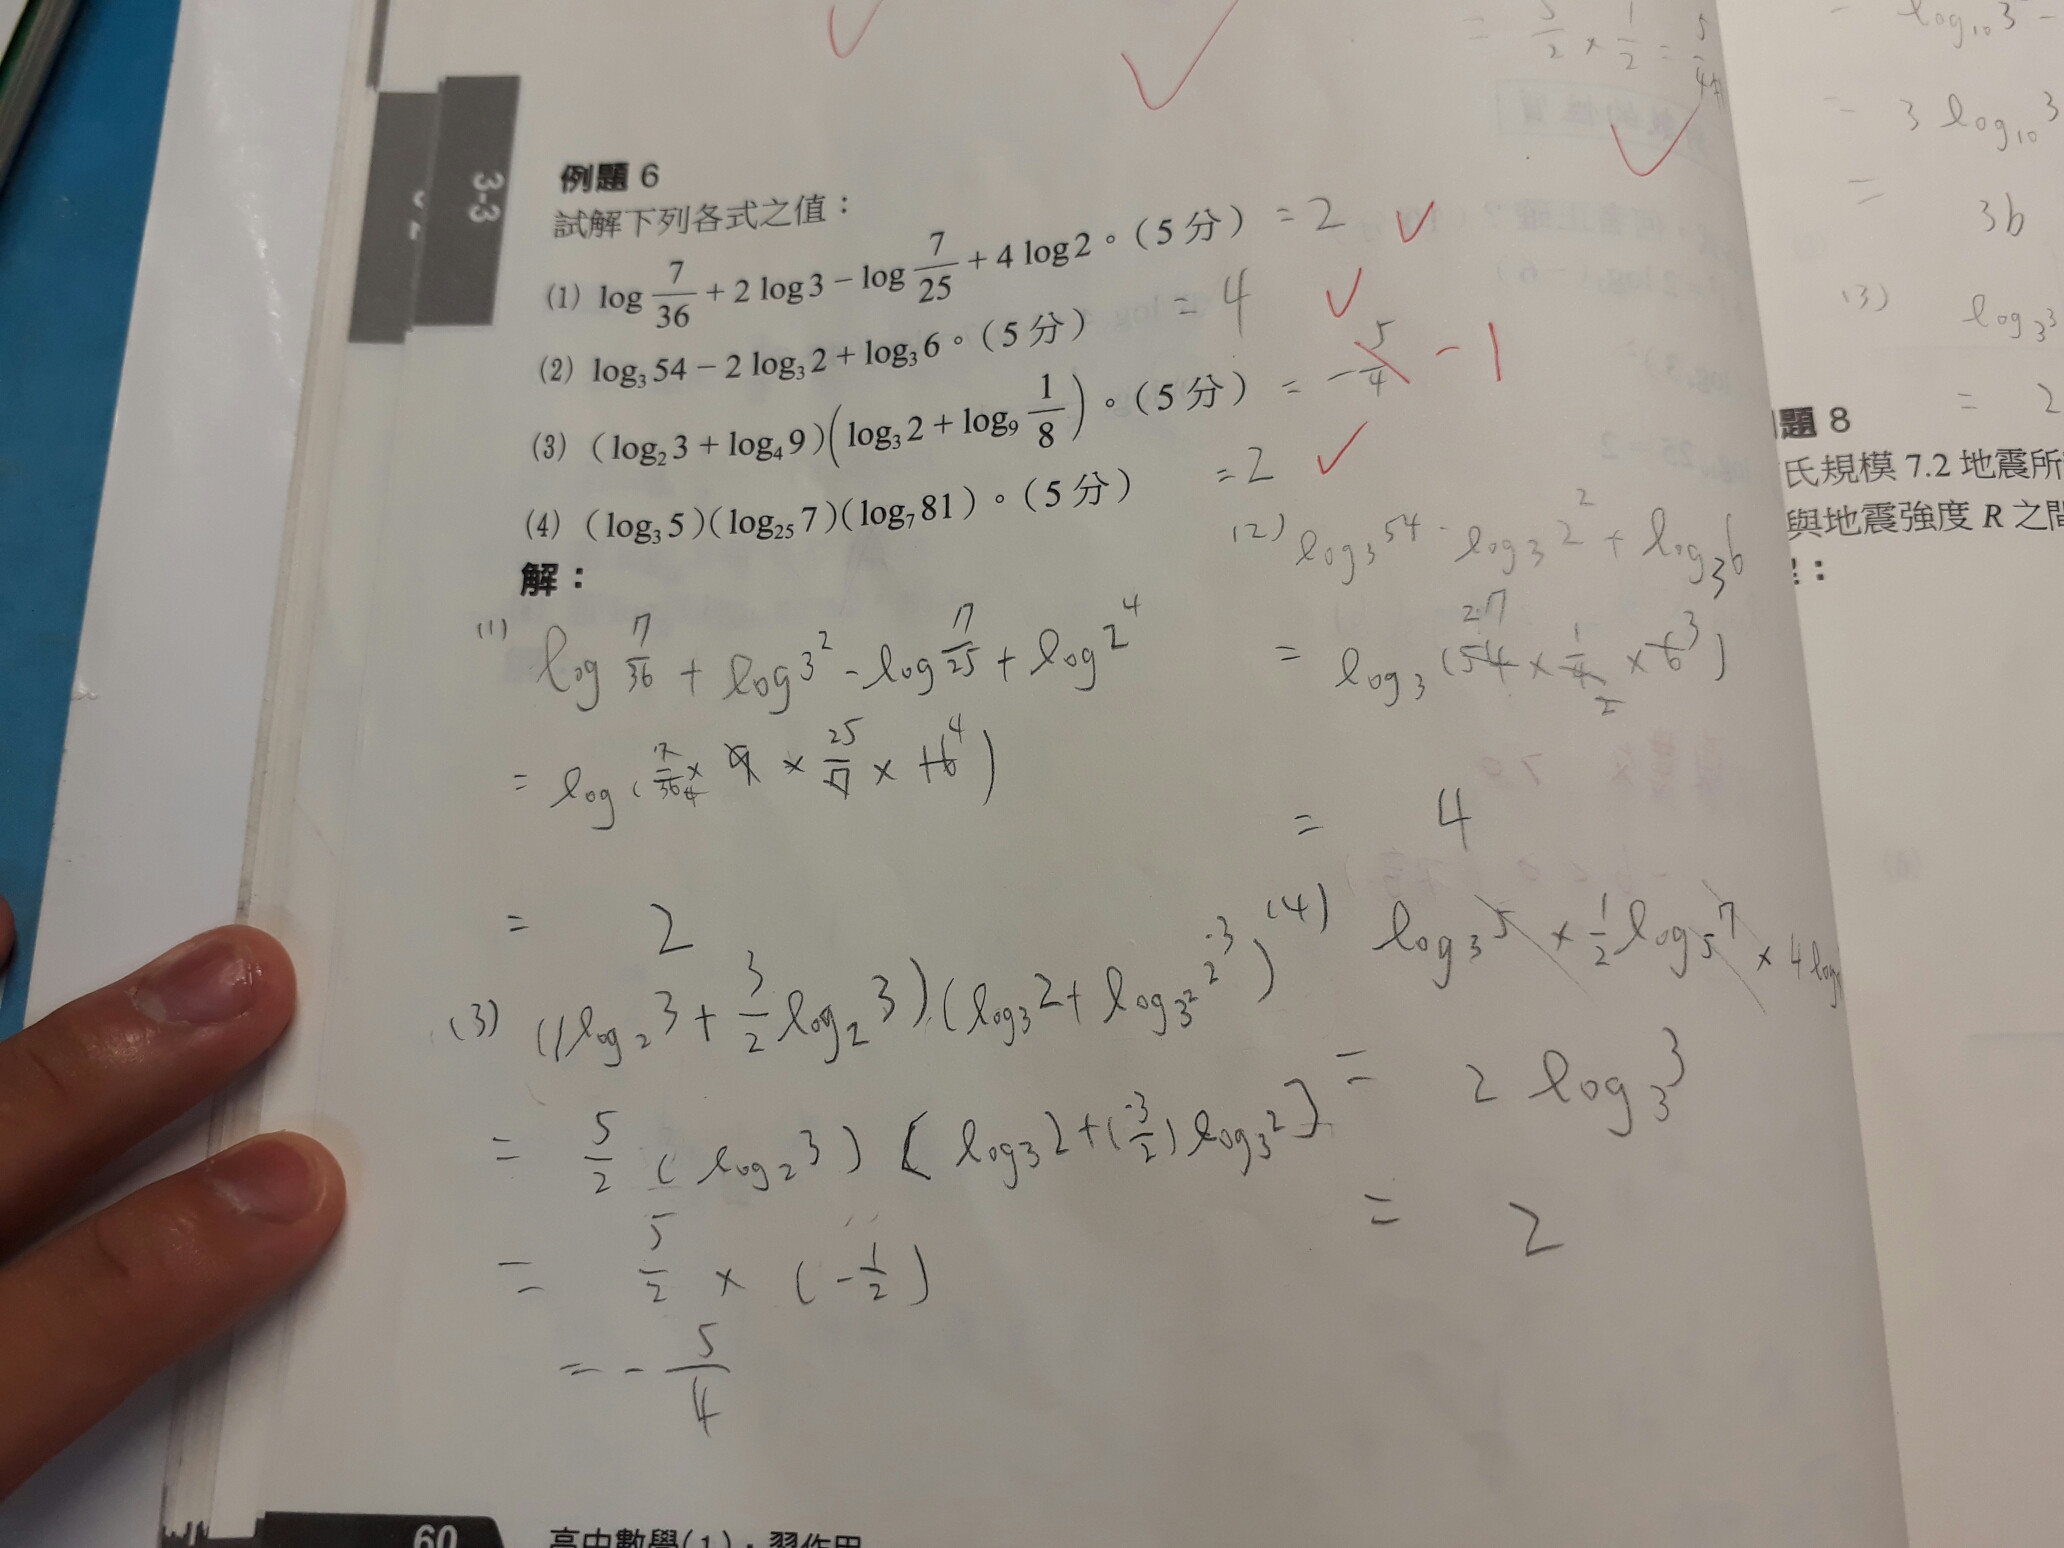 = 5/2 × 1/2 = 5/4
3-3
例題 6
試解下列各式之值：
(1) log 7/36 + 2 log 3 − log 7/25 + 4 log 2。(5 分) = 2
(2) log₃ 54 − 2 log₃ 2 + log₃ 6。(5 分) = 4
(3) (log₂ 3 + log₄ 9)(log₃ 2 + log₉ 1/8)。(5 分) = −5/4 −1
(4) (log₃ 5)(log₂₅ 7)(log₇ 81)。(5 分) = 2
解：
(1) log 7/36 + log 3² − log 7/25 + log 2⁴
= log (7/36 × 9 × 25/7 × 16 4)
= 2
(2) log₃ 54 − log₃ 2² + log₃ 6
= log₃ (54 27 × 1/4 2 × 6 3)
= 4
(3) (log₂ 3 + 3/2 log₂ 3)(log₃ 2 + log₃² 2⁻³)
= 5/2 (log₂ 3) [log₃ 2 + (−3/2) log₃ 2]
= 5/2 × (−1/2)
= − 5/4
(4) log₃ 5 × 1/2 log₅ 7 × 4 log
= 2 log₃ 3
= 2
60
高中數學(1)．習作甲
= log₁₀ 3 −
= 3 log₁₀ 3
= 3b
(3) log₃³
= 2
題 8
氏規模 7.2 地震所
與地震強度 R 之間
：